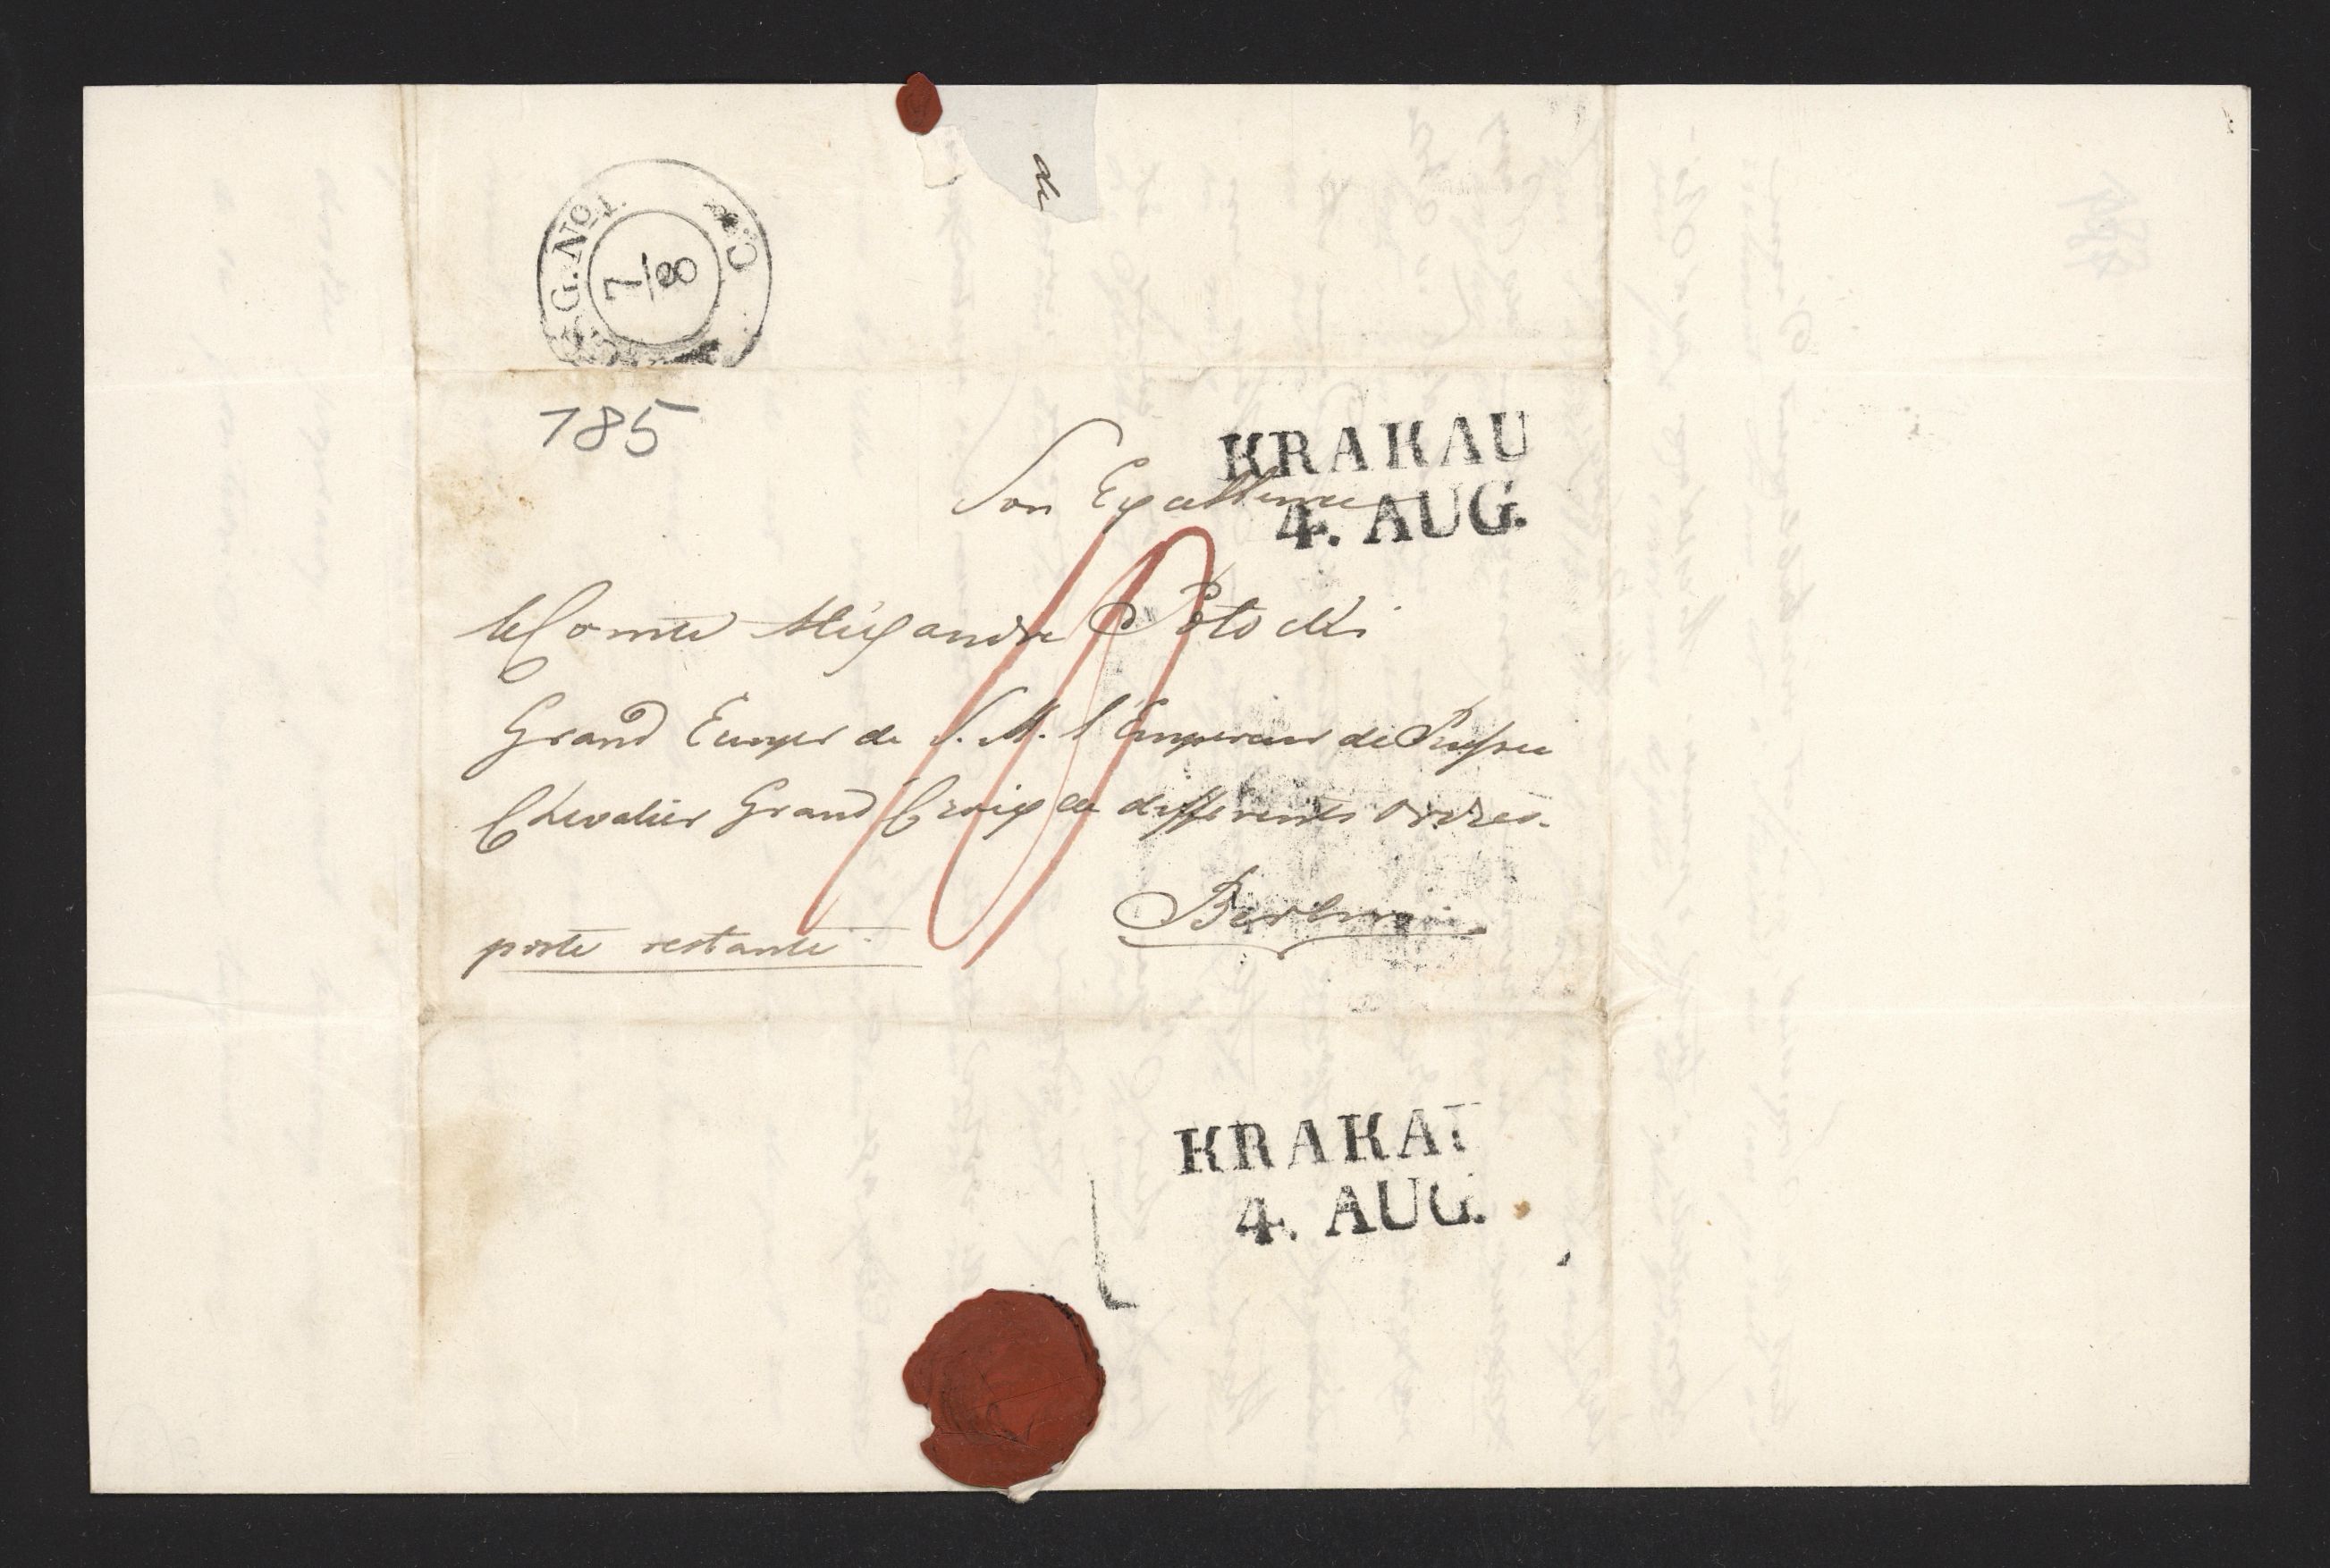 de
G. No 1.
7/8
185
KRAKAU
4. AUG.
Son Excellence
le Comte Alexandre Potocki
Grand Ecuyer de S. M. l'Empereur de Russie
Chevalier Grand Croix de differents ordres.
Berlin
poste restante
KRAKAU
4. AUG.